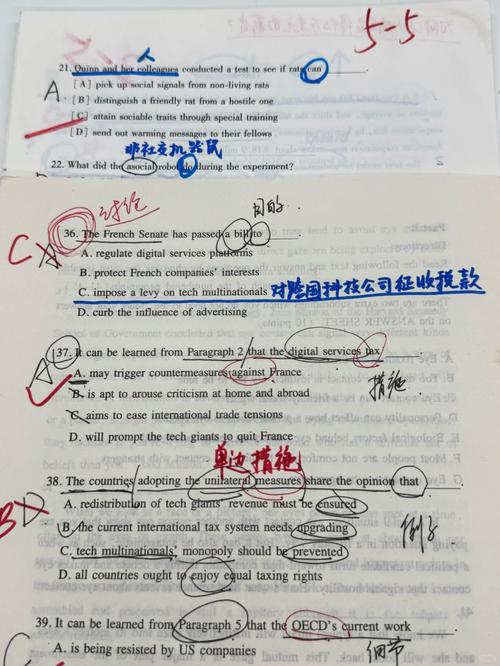 5-5
人
21. Quinn and her colleagues conducted a test to see if rats can
[A] pick up social signals from non-living rats
A
[B] distinguish a friendly rat from a hostile one
[C] attain sociable traits through special training
[D] send out warming messages to their fellows
非社交机器鼠
22. What did the asocial robot do during the experiment?
讨论
目的
36. The French Senate has passed a bill to
C
A. regulate digital services platforms
B. protect French companies' interests
C. impose a levy on tech multinationals 对跨国科技公司征收税款
D. curb the influence of advertising
37. It can be learned from Paragraph 2 that the digital services tax
A. may trigger countermeasures against France
措施
B. is apt to arouse criticism at home and abroad
C. aims to ease international trade tensions
D. will prompt the tech giants to quit France
单边措施
38. The countries adopting the unilateral measures share the opinion that
A. redistribution of tech giants' revenue must be ensured
B
B. the current international tax system needs upgrading
例子
C. tech multinationals' monopoly should be prevented
D. all countries ought to enjoy equal taxing rights
39. It can be learned from Paragraph 5 that the OECD's current work
细节
A. is being resisted by US companies